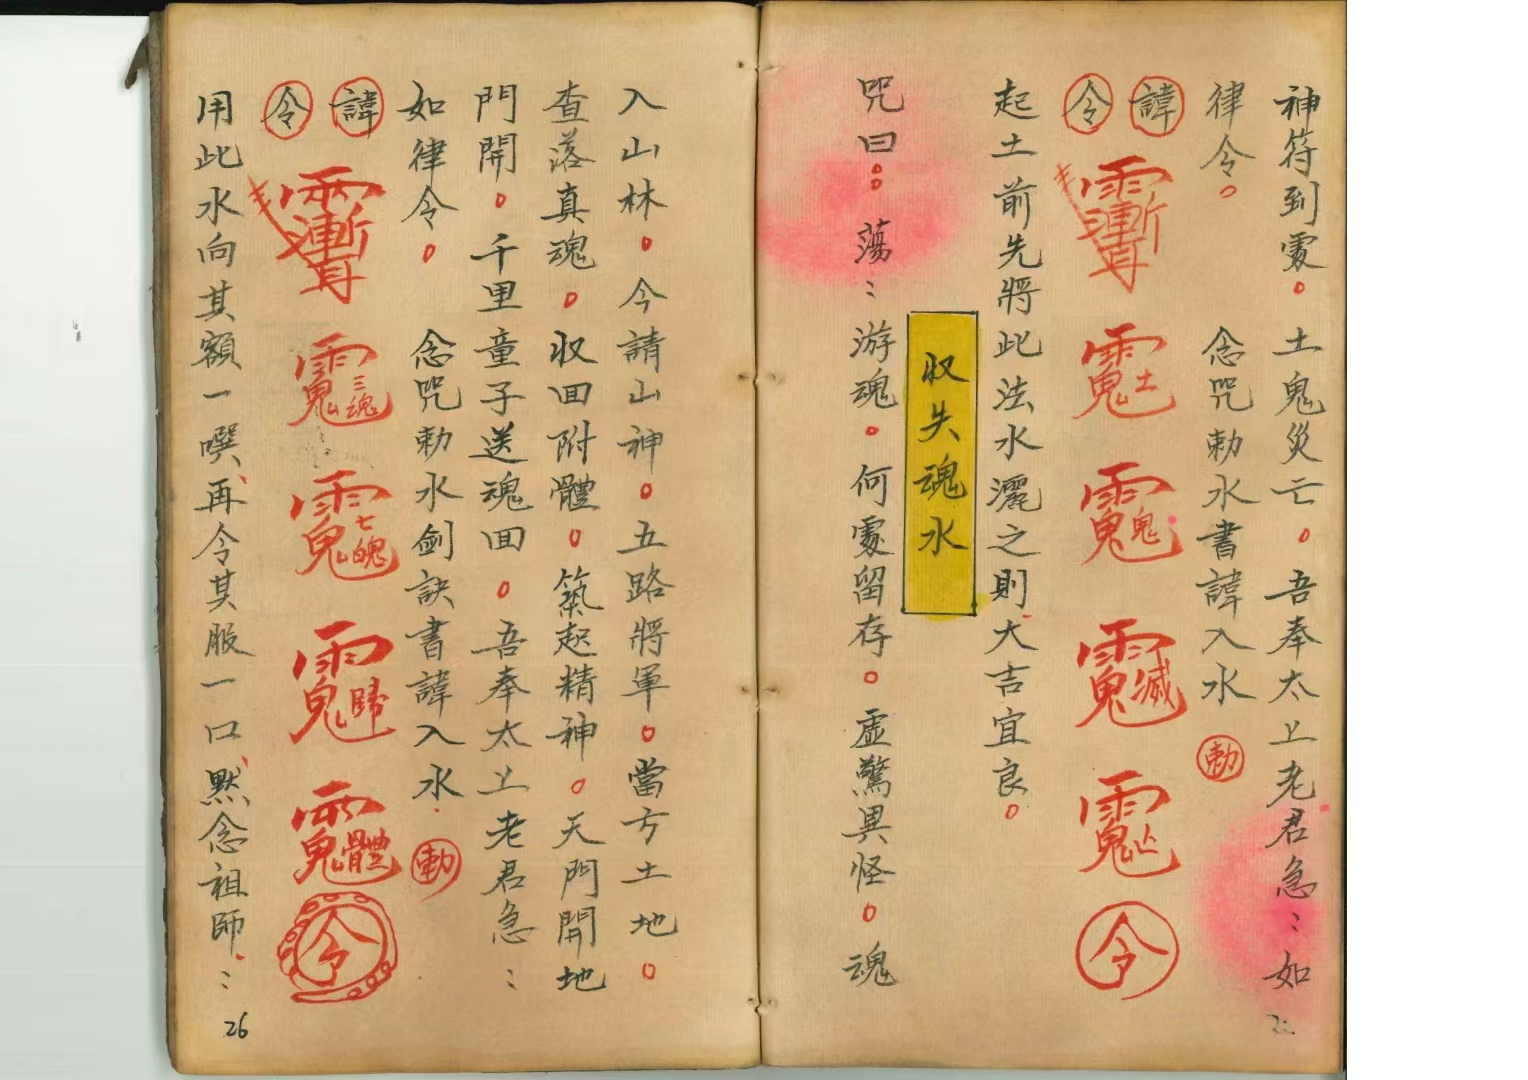 神符到處。土鬼災亡。吾奉太上老君急:如
律令。 念咒勅水書諱入水 勅
諱
令
土
鬼
滅
令
起土前先將此法水灑之則大吉宜良。
收失魂水
咒曰:蕩:游魂。何處留存。虛驚異怪。魂
入山林。今請山神。五路將軍。當方土地。
查落真魂。收回附體。氣起精神。天門開地
門開。千里童子送魂回。吾奉太上老君急:
如律令。 念咒勅水劍訣書諱入水. 勅
諱
令
三魂
七魄
歸
體
令
用此水向其額一噀、再令其服一口、默念祖師:
26